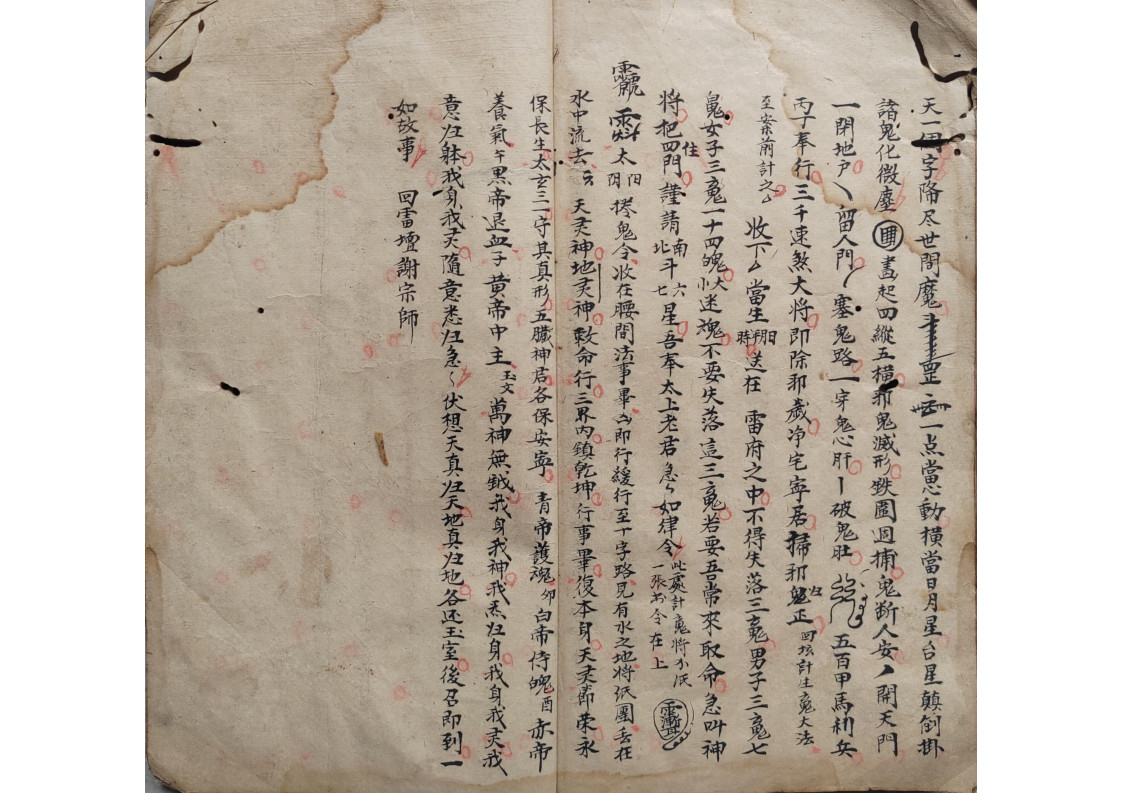 天一個字降尽世間魔 罡 一点當心動橫當日月星台星顛倒掛
諸鬼化微塵 畫起四縱五橫邪鬼滅形跌圖迴捕鬼斷人安丿開天門
一閉地戶乀留人門丿塞鬼路一穿鬼心肝丨破鬼肚 五百甲馬利兵
丙丁奉行三千速煞大將即除邪歲净宅寧居掃邪归正 回垓計生䰟大法
至案前計之 收下 當生 時 日 送在 雷府之中不得失落三䰟男子三䰟七
䰟女子三䰟一十四魄大小迷魂不要失落這三䰟若要吾常來取命急叫神
將把住四門謹請南北斗六七星吾奉太上老君急々如律令 此處計䰟將小紙一張 令在上
太阳阴 捲鬼令收在腰間法事畢 即行緩行至丁字路見有水之地將紙團丢在
水中流去 天灵神地灵神敕命行三界內鎮乾坤行事畢復本身天灵節荣永
保長生太玄三一守其真形五臟神居各保安寧 青帝護魂卯白帝侍魄酉赤帝
養氣午黑帝退血子黄帝中主玉文萬神無越我身我神我炁归身我身我灵我
意归躰我身我灵隨意悉归急々伏想天真归天地真归地各还玉室後召即到一
如故事 回雷壇謝宗師